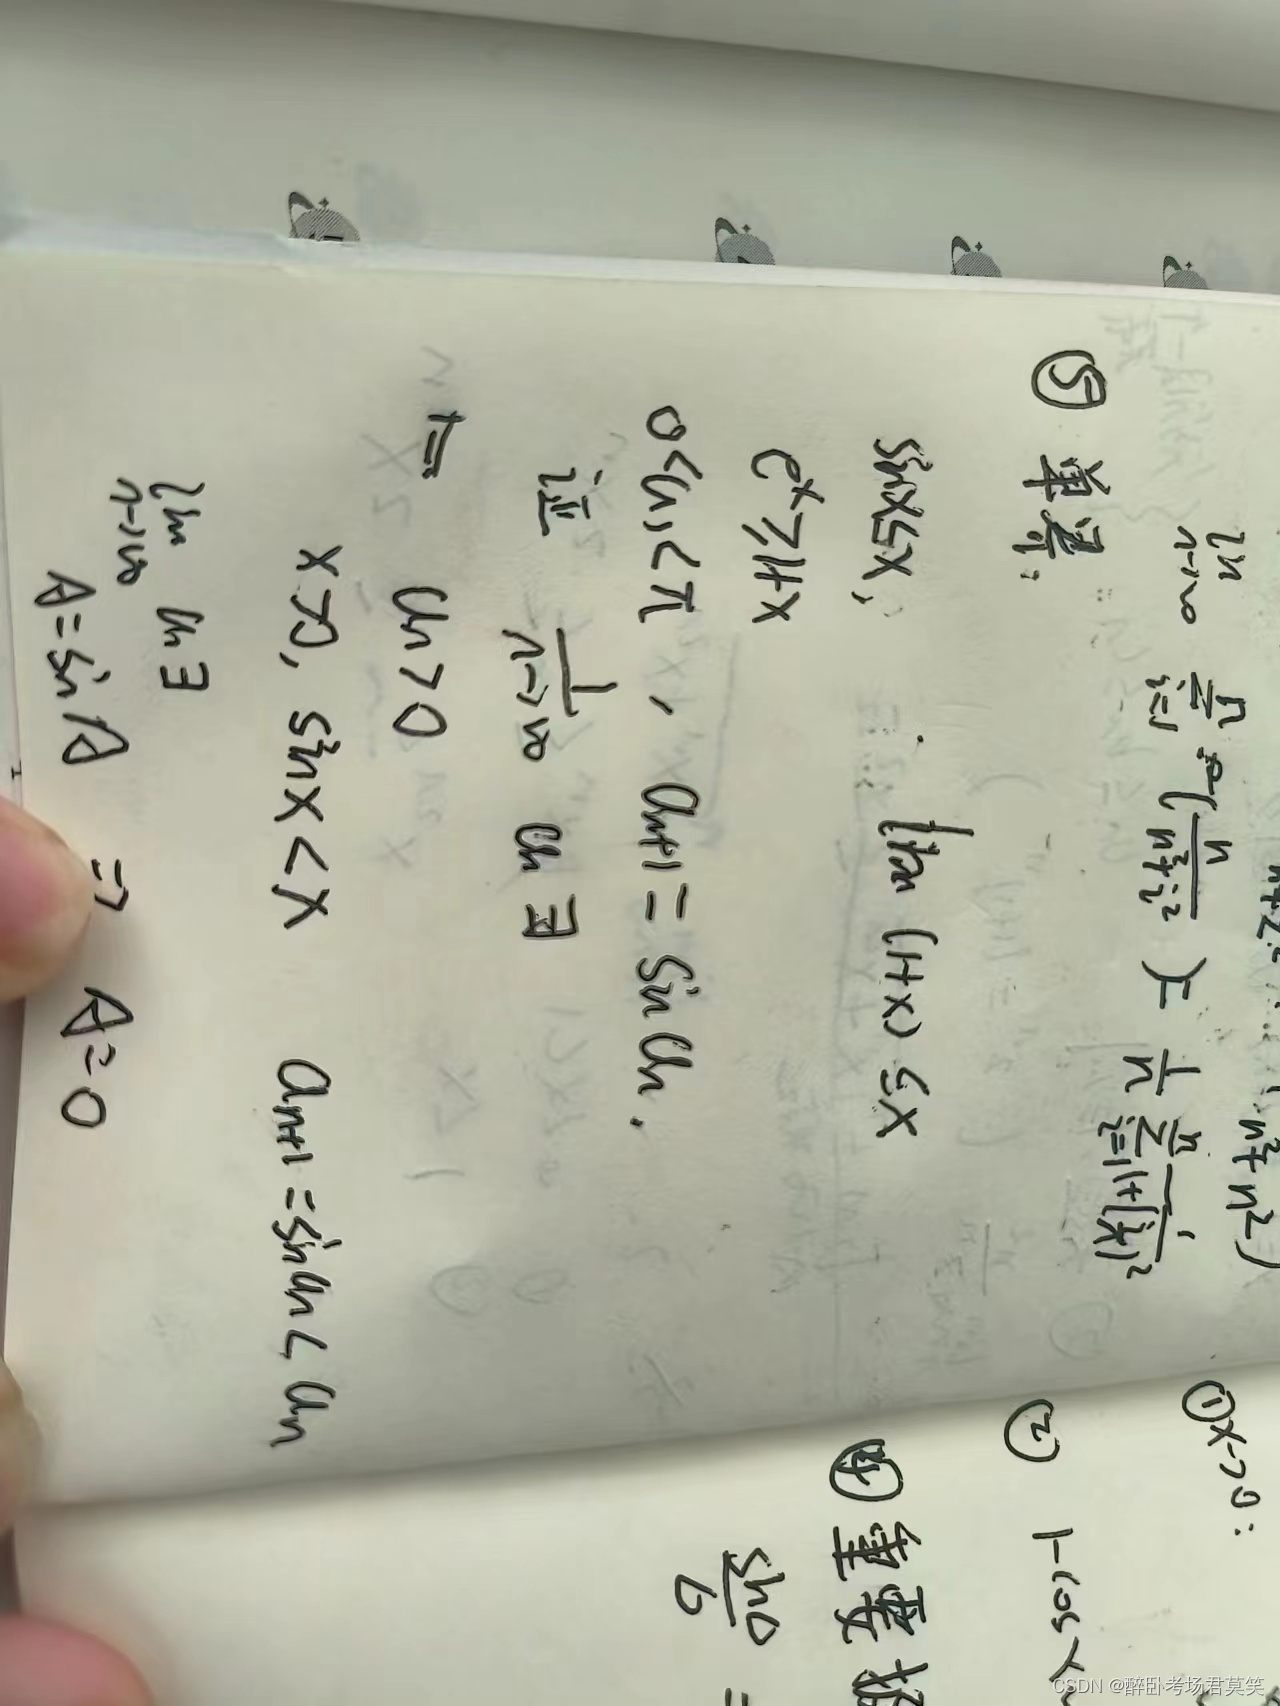 lim n→∞ n∑i=1 ( n/n²+i² ) = 1/n n∑i=1 1/1+(i/n)²
⑤ 单界:
sinx≤x, ln(1+x) ≤x
e^x≥1+x
0<a₁<π, aₙ₊₁ = sin aₙ.
证 lim n→∞ aₙ ∃
aₙ>0
x>0, sinx<x aₙ₊₁=sin aₙ< aₙ
lim n→∞ aₙ ∃
A=sin A ⇒ A=0
①x→0:
② 1-cos x
④ 重要
sin□/□ =
CSDN @醉卧考场君莫笑